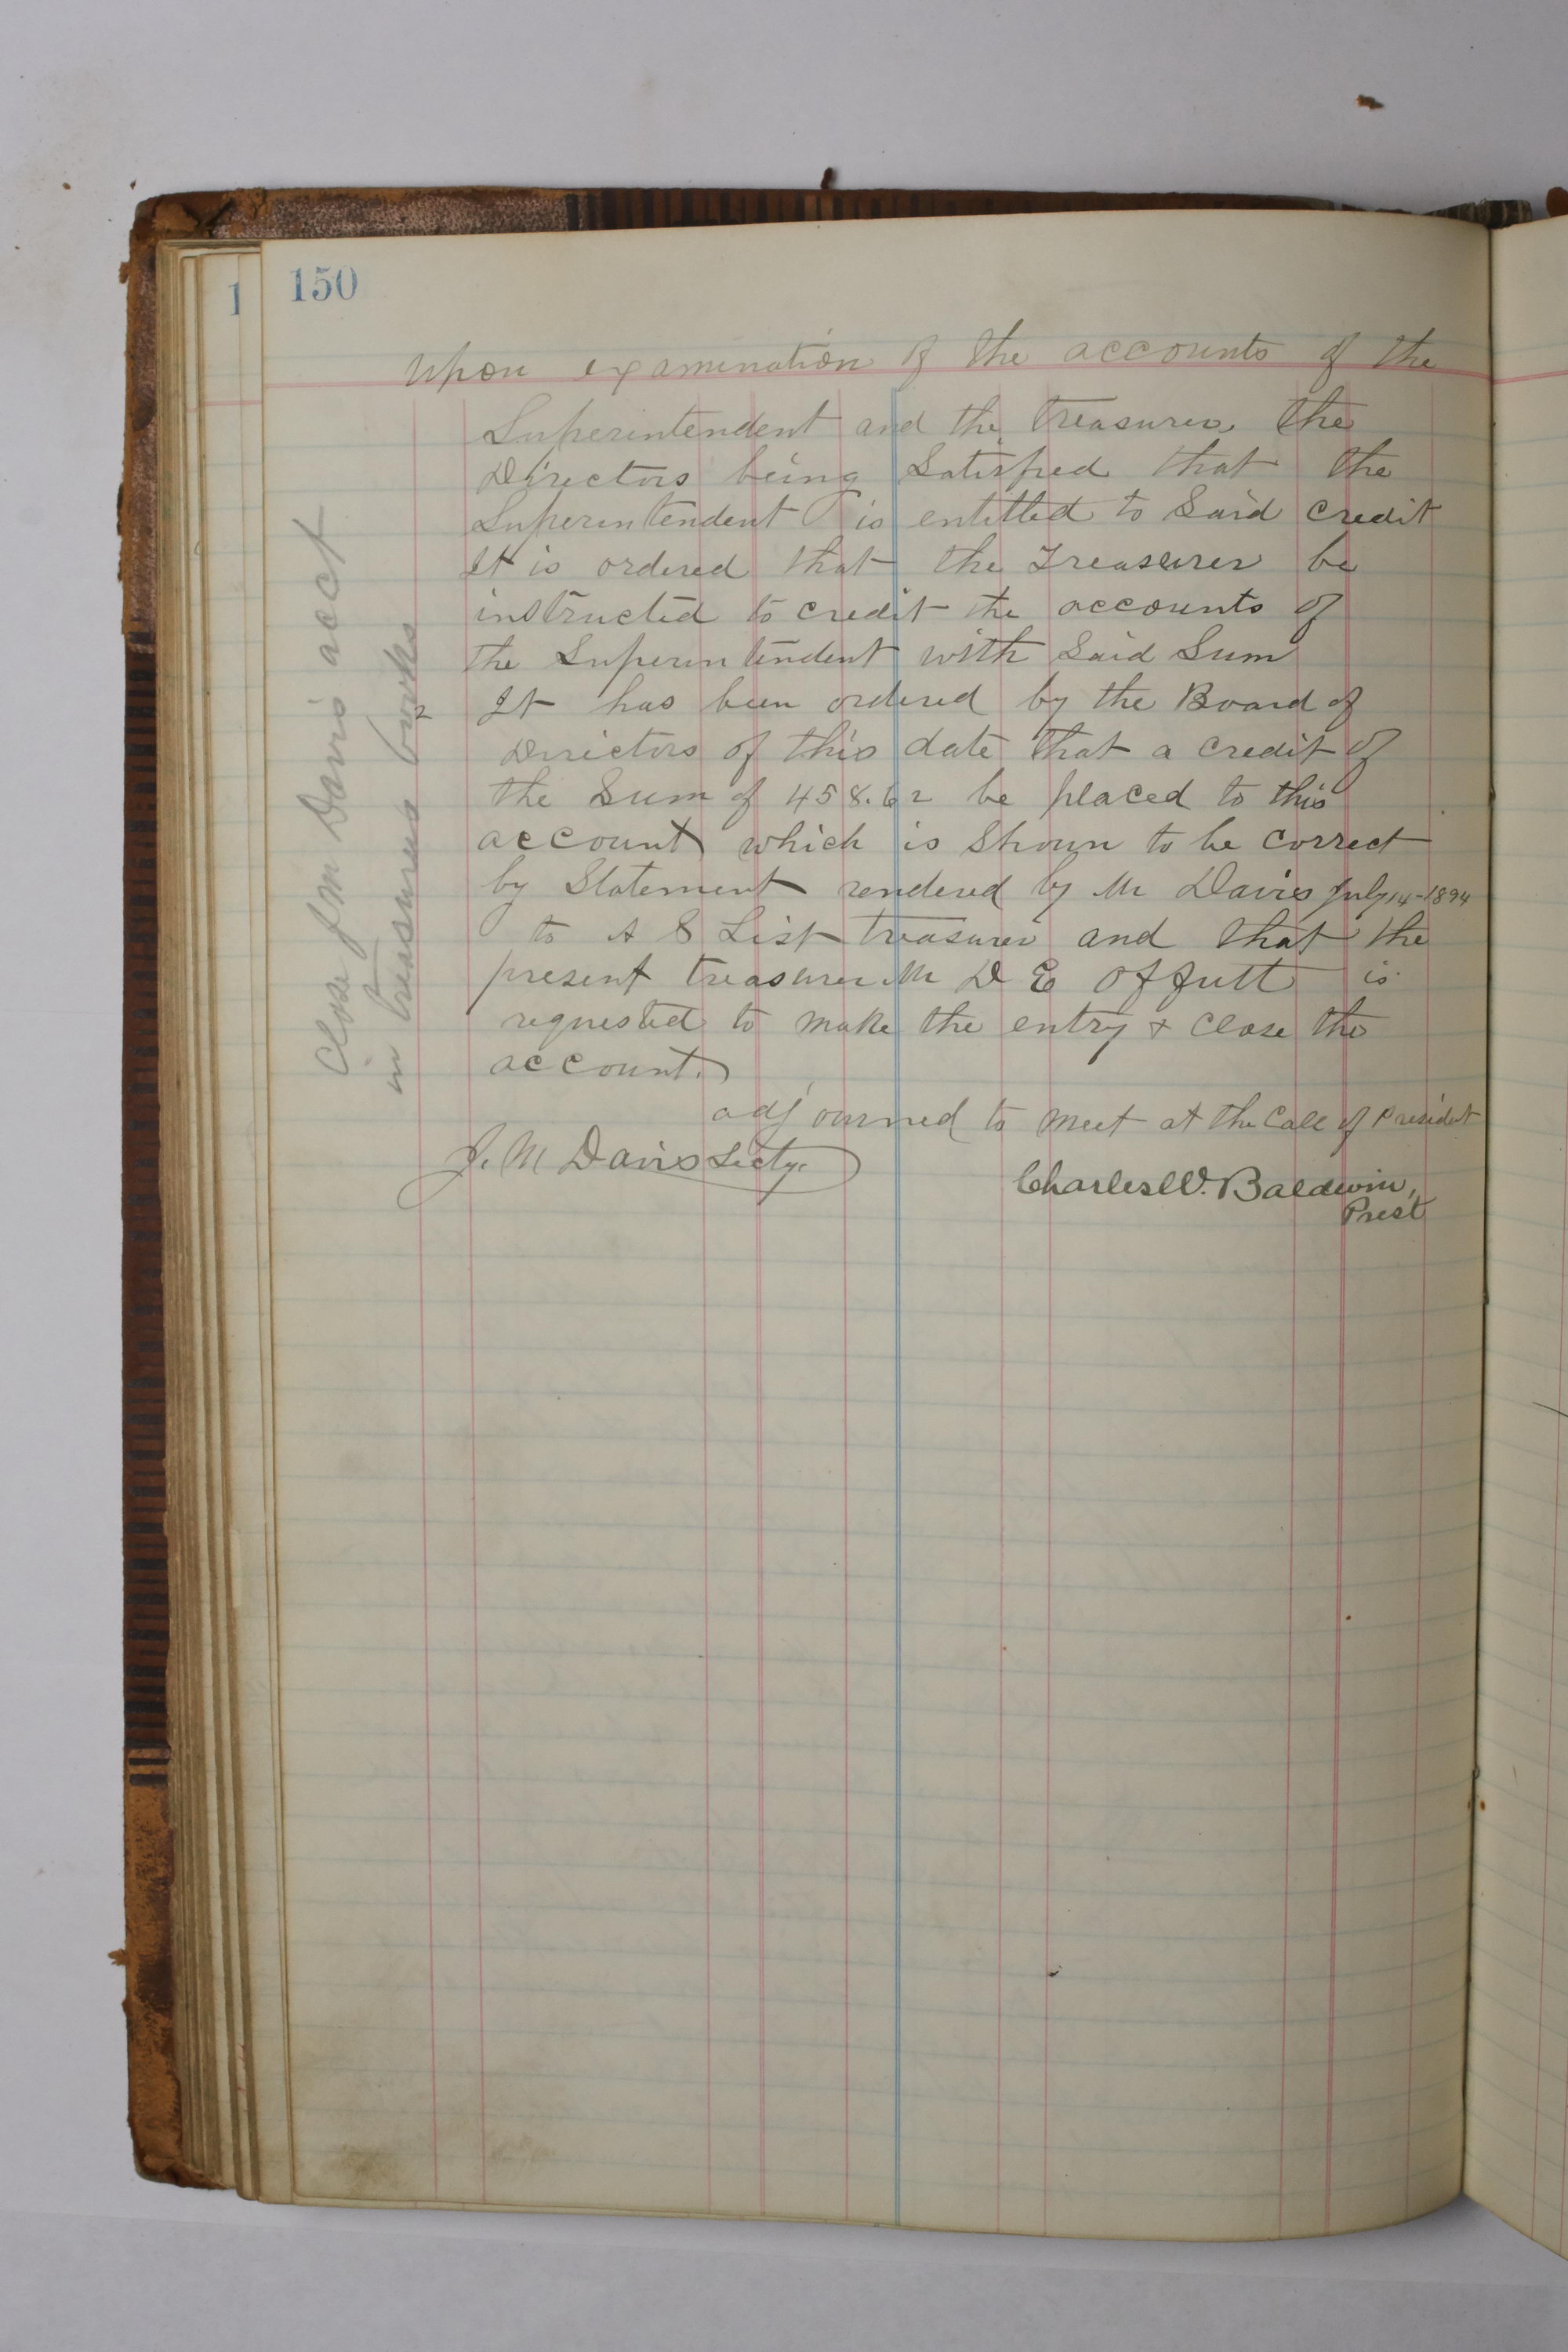 1
150
Upon examination of the accounts of the
Superintendent and the treasurer the
Directors being Satisfied that the
Superintendent is entitled to Said credit
It is ordered that the Treasurer be
instructed to credit the accounts of
the Superintendent with Said Sum
Close J M Davis acct
in treasurers books
2 It has been ordered by the Board of
Directors of this date that a credit of
the Sum of 458.62 be placed to this
account which is Shown to be correct
by Statement rendered by Mr Davis July 14-1894
to A S List treasurer and that the
present treasurer Mr D E Offutt is
requested to make the entry & close the
account.
adjourned to meet at the Call of President
J. M Davis Secty.
Charles W. Baldwin,
Prest